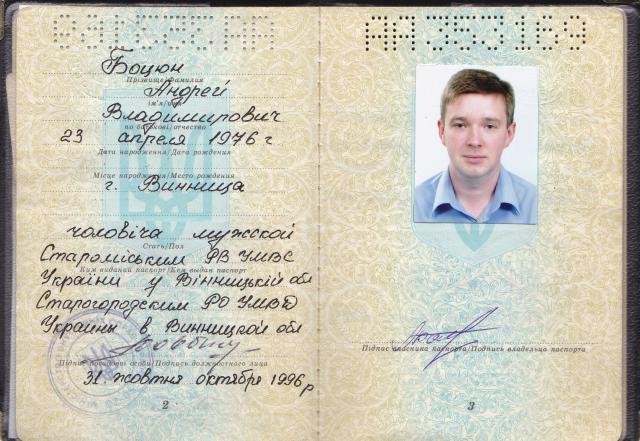 АА353169
Боцюн
Прізвище/Фамилия
Андрей
ім'я/имя
Владимирович
по батькові/отчество
23 апреля 1976 г
Дата народження/Дата рождения
Місце народження/Место рождения
г. Винница
чоловіча мужской
Стать/Пол
Староміським РВ УМВС
Ким виданий паспорт/Кем выдан паспорт
України у Вінницькій обл
Старогородским РО УМВД
Украины в Винницкой обл
Підпис посадової особи/Подпись должностного лица
31 жовтня октября 1996 р
2
Підпис власника паспорта/Подпись владельца паспорта
3